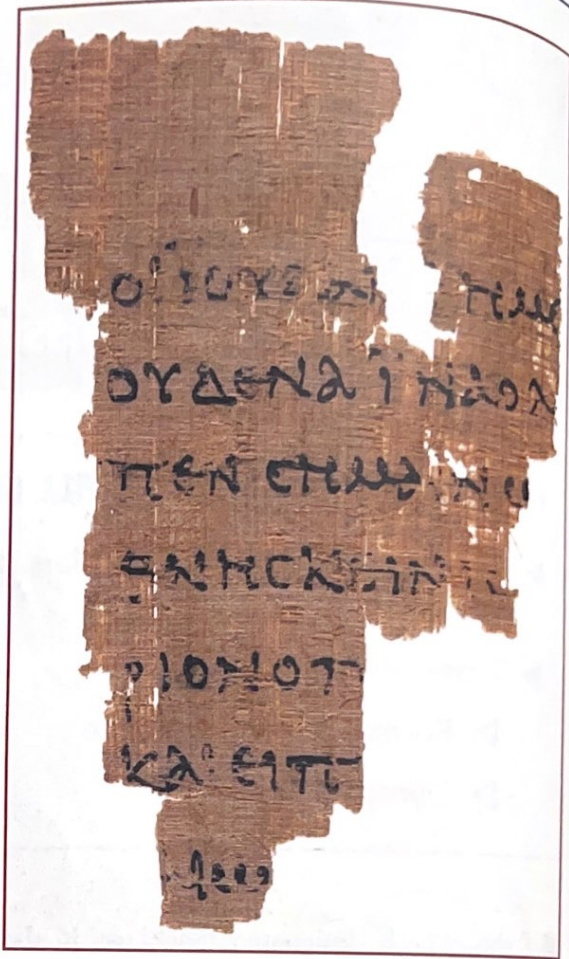 ΟΙ ΪΟΥΔΑΙ ΗΜ
ΟΥΔΕΝΑ ΪΝΑ Ο Λ
ΠΕΝ CΗΜΑΙΝΩ
ΘΝΗCΚΕΙΝ Ι
ΡΙΟΝ Ο Π
ΚΑΙ ΕΙΠ